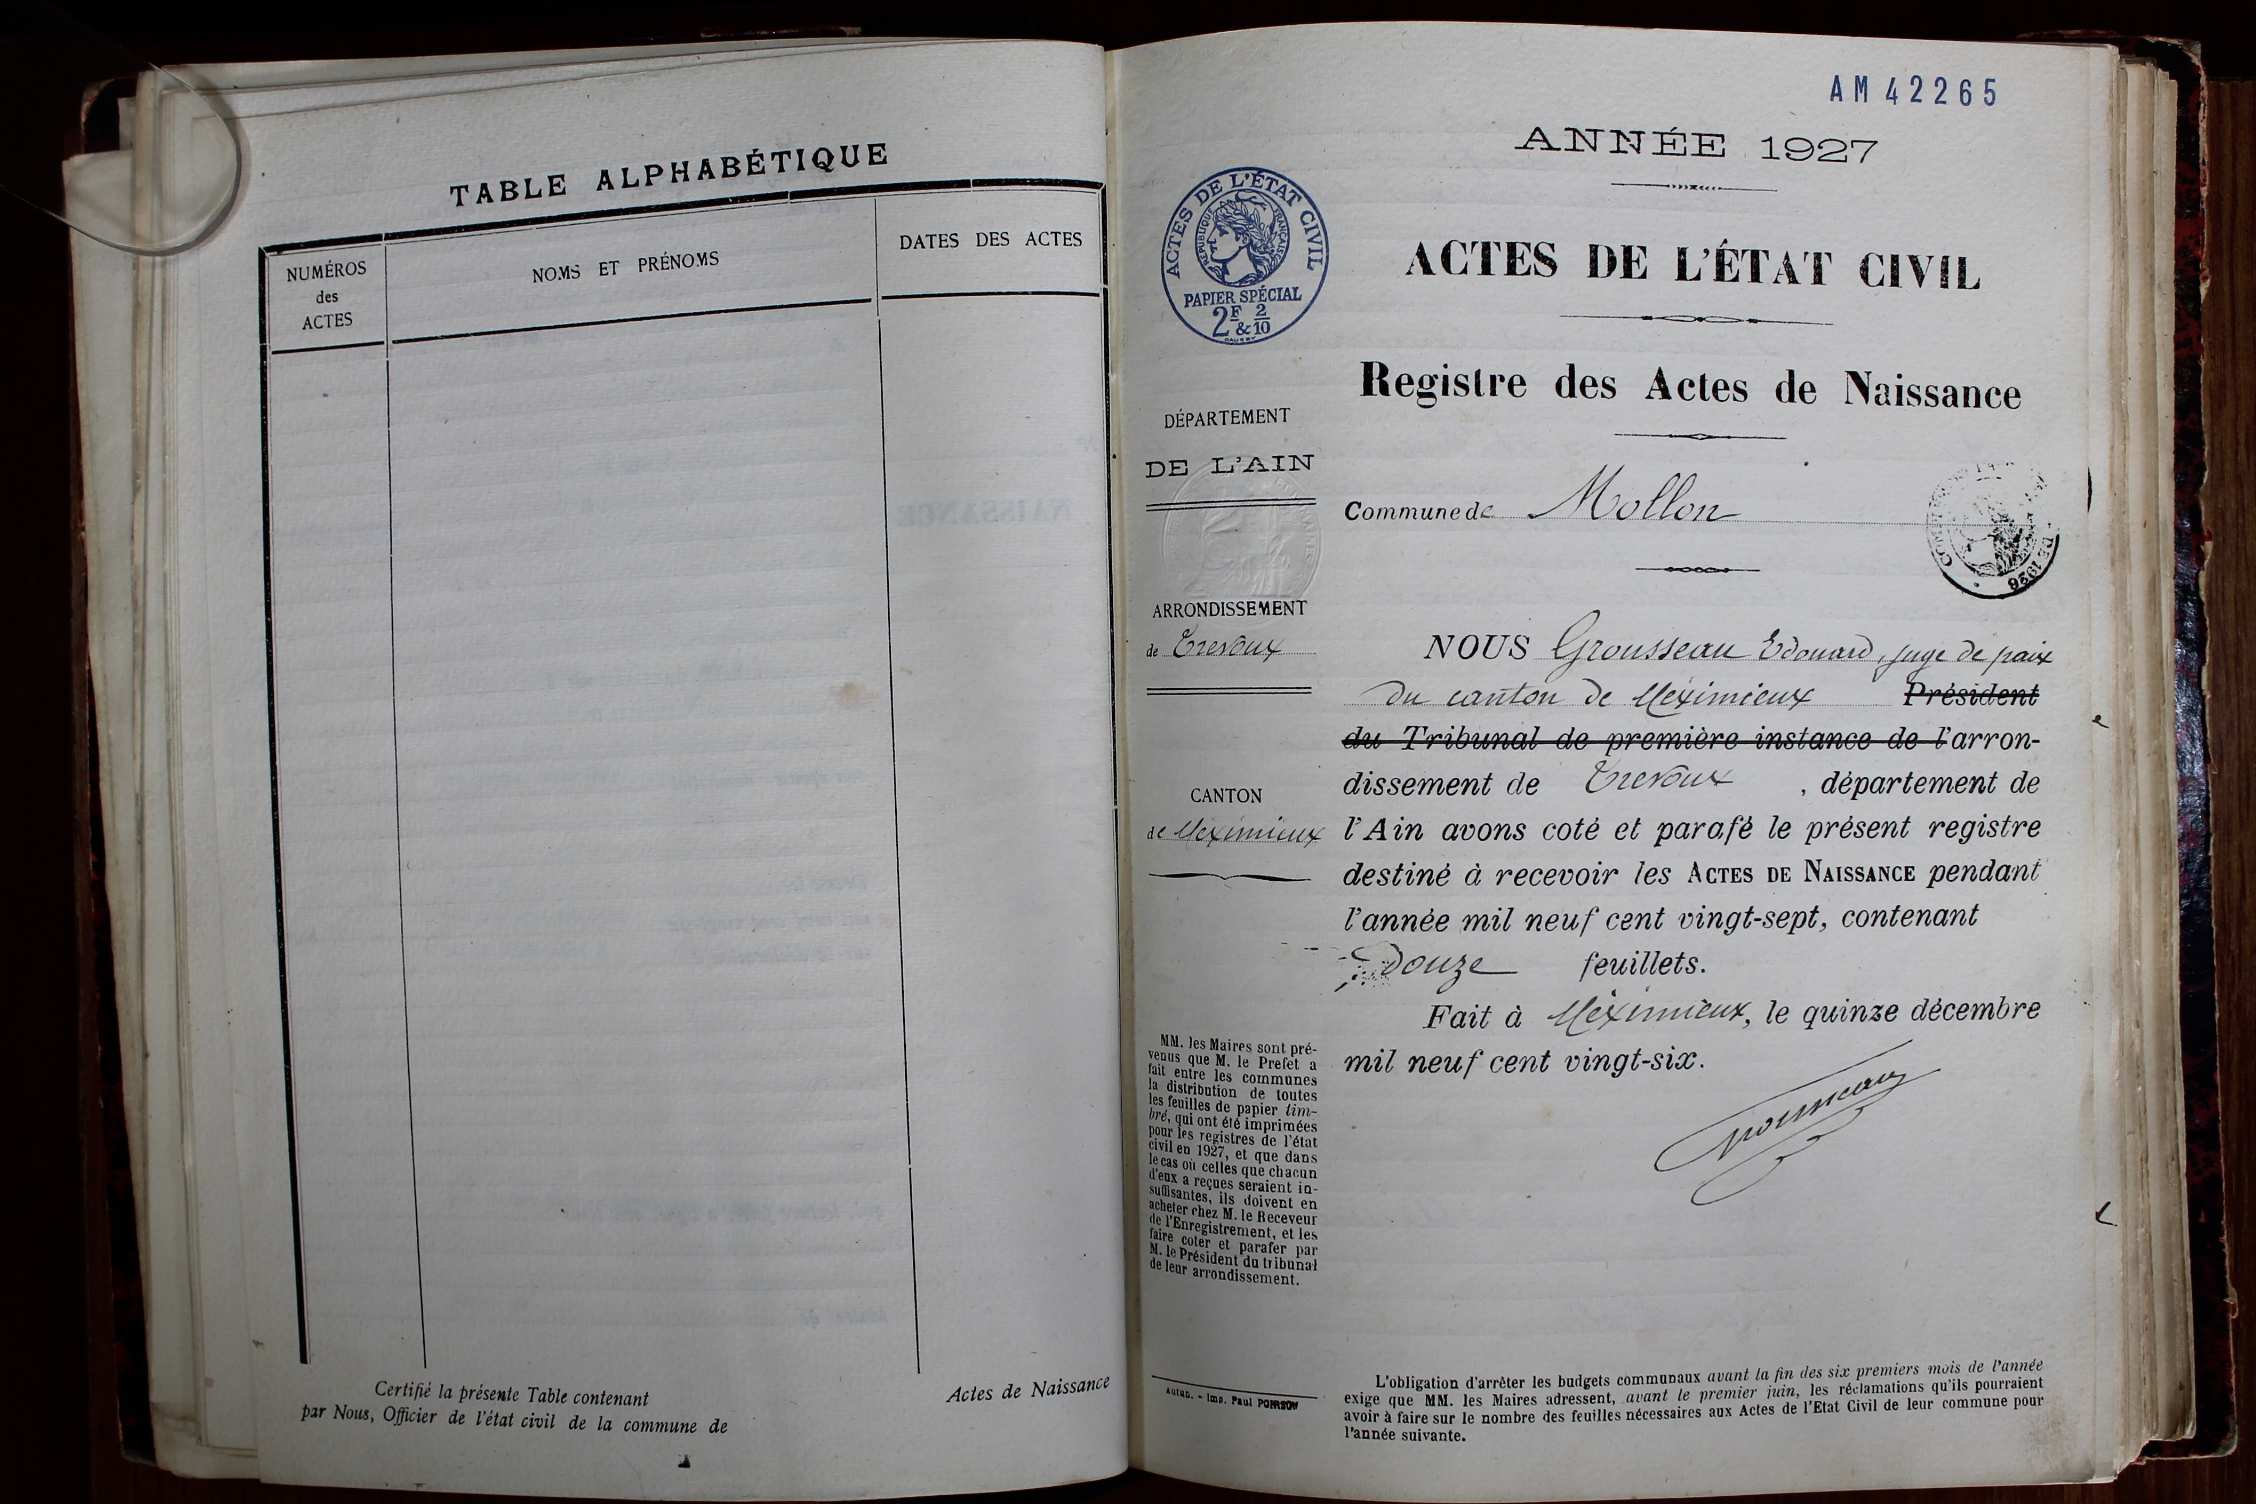 TABLE ALPHABÉTIQUE
NUMÉROS
des
ACTES
NOMS ET PRÉNOMS
DATES DES ACTES
Certifié la présente Table contenant
Actes de Naissance
par Nous, Officier de l'état civil de la commune de
AM 42265
ANNÉE 1927
ACTES DE L'ÉTAT CIVIL
RÉPUBLIQUE FRANÇAISE
PAPIER SPÉCIAL
2F & 2/10
ACTES DE L'ÉTAT CIVIL
Registre des Actes de Naissance
DÉPARTEMENT
DE L'AIN
Commune de Mollon
DE 1926
ARRONDISSEMENT
de Trevoux
CANTON
de Méximieux
NOUS Grousseau Edouard, juge de paix
du canton de Méximieux Président
du Tribunal de première instance de l'arron-
dissement de Trevoux, département de
l'Ain avons coté et parafé le présent registre
destiné à recevoir les ACTES DE NAISSANCE pendant
l'année mil neuf cent vingt-sept, contenant
Douze feuillets.
Fait à Méximieux, le quinze décembre
mil neuf cent vingt-six.
MM. les Maires sont pré-
venus que M. le Prefet a
fait entre les communes
la distribution de toutes
les feuilles de papier tim-
bré, qui ont été imprimées
pour les registres de l'état
civil en 1927, et que dans
le cas où celles que chacun
d'eux a reçues seraient in-
suffisantes, ils doivent en
acheter chez M. le Receveur
de l'Enregistrement, et les
faire coter et parafer par
M. le Président du tribunal
de leur arrondissement.
Autun. - Imp. Paul
L'obligation d'arrêter les budgets communaux avant la fin des six premiers mois de l'année
exige que MM. les Maires adressent, avant le premier juin, les réclamations qu'ils pourraient
avoir à faire sur le nombre des feuilles nécessaires aux Actes de l'Etat Civil de leur commune pour
l'année suivante.